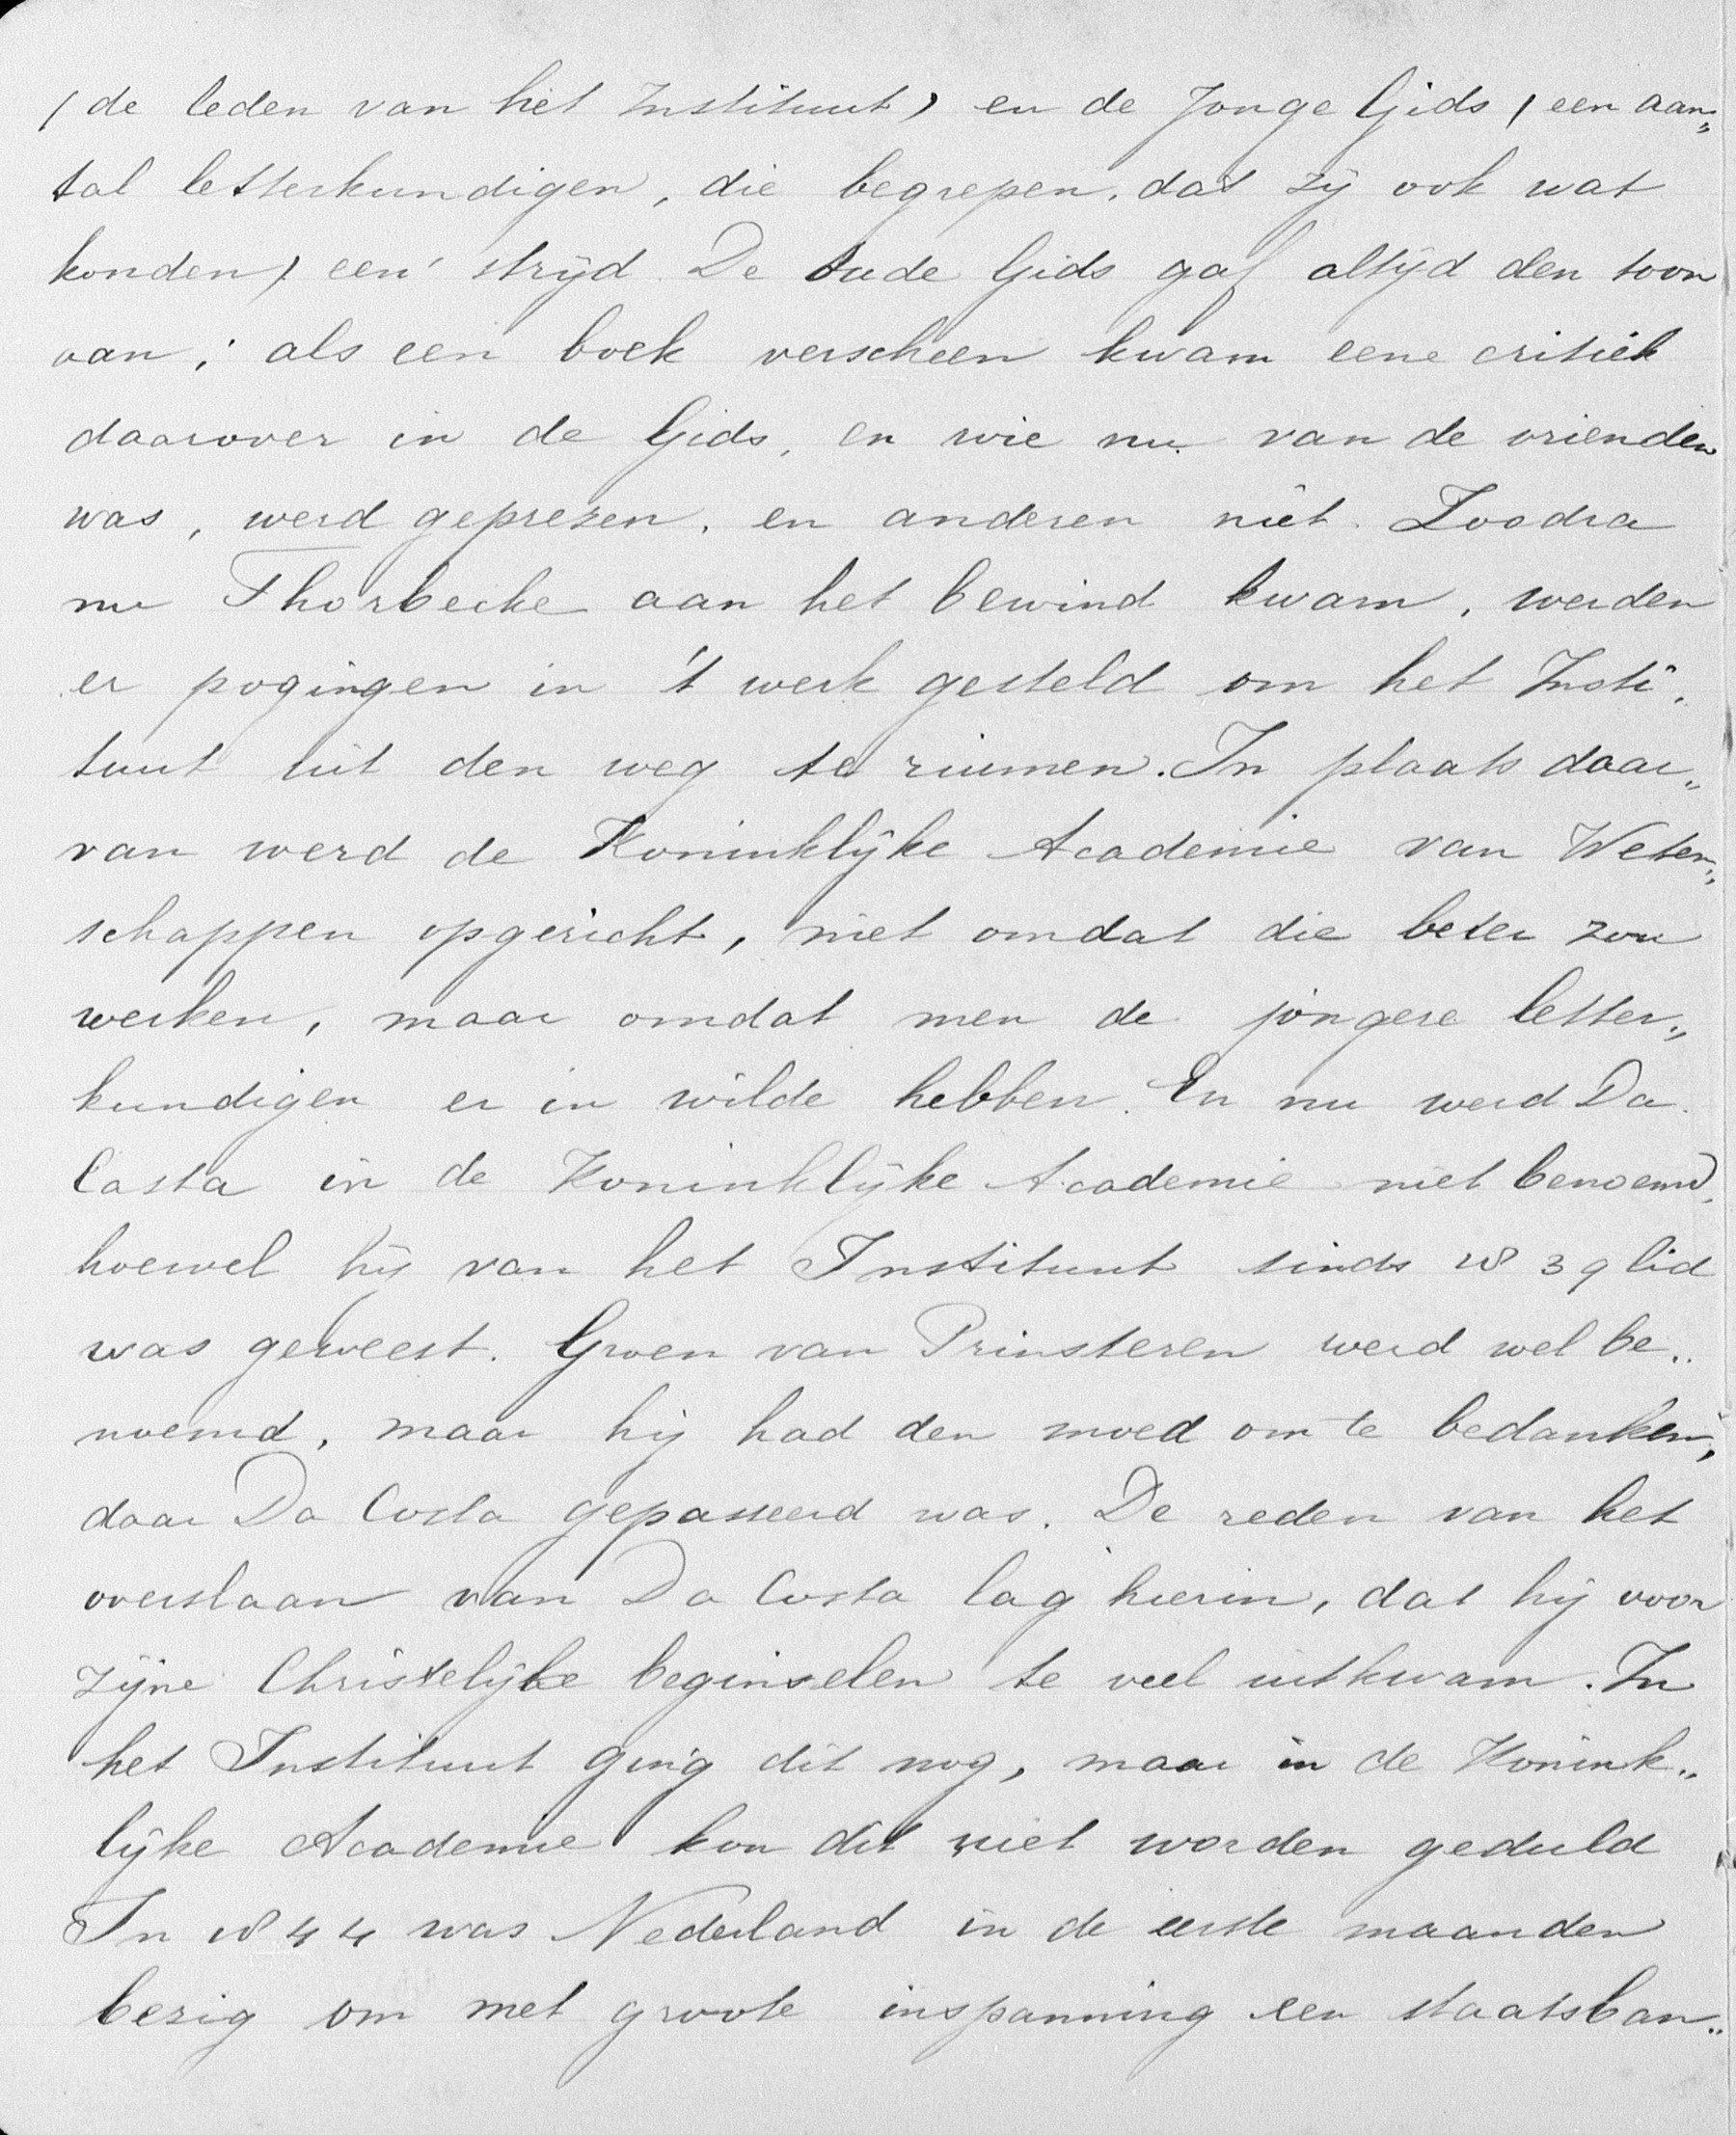 (de leden van het Instituut) en de Jonge Gids (een aan„
tal letterkundigen, die begrepen, dat zij ook wat
konden) een strijd. De Oude Gids gaf altijd den toon
aan; als een boek verscheen kwam eene critiek
daarover in de Gids, en wie nu van de vrienden
was, werd geprezen, en anderen niet. Zoodra
nu Thorbecke aan het bewind kwam, werden
er pogingen in 't werk gesteld om het Insti„
tuut uit den weg te ruimen. In plaats daar„
van werd de Koninklijke Academie van Weten„
schappen opgericht, niet omdat die beter zou
werken, maar omdat men de jongere letter„
kundigen er in wilde hebben. En nu werd Da
Costa in de Koninklijke Academie niet benoemd,
hoewel hij van het Instituut sinds 1839 lid
was geweest. Groen van Prinsteren werd wel be„
noemd, maar hij had den moed om te bedanken,
daar Da Costa gepasseerd was. De reden van het
overslaan van Da Costa lag hierin, dat hij voor
zijne Christelijke beginselen te veel uitkwam. In
het Instituut ging dit nog, maar in de Konink„
lijke Academie kon dit niet worden geduld
In 1844 was Nederland in de eerste maanden
bezig om met groote inspanning een staatsban„